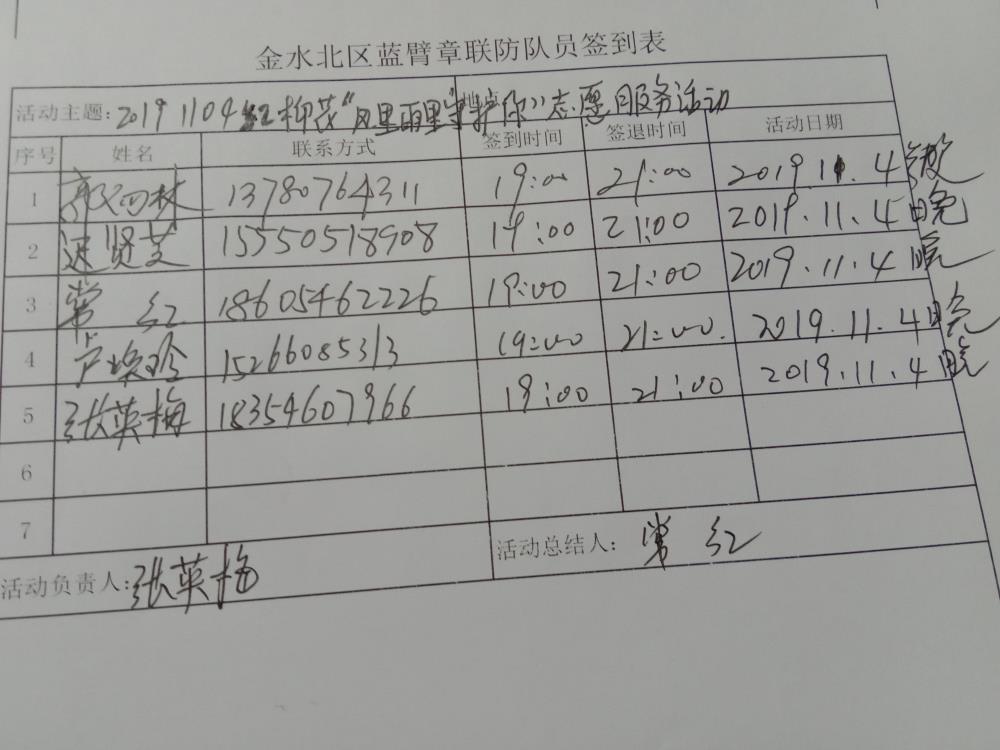 金水北区蓝臂章联防队员签到表
活动主题: 20191104红柳花“风里雨里守护你”志愿服务活动 地点
序号 姓名 联系方式 签到时间 签退时间 活动日期
1 13780764311 19:00 21:00 2019.11.4
2 逯贤芝 15550518908 19:00 21:00 2019.11.4晚
3 常红 18605462226 19:00 21:00 2019.11.4晚
4 15266085313 19:00 21:00 2019.11.4晚
5 张英梅 18354607966 19:00 21:00 2019.11.4晚
6
7
活动负责人: 张英梅 活动总结人: 常红